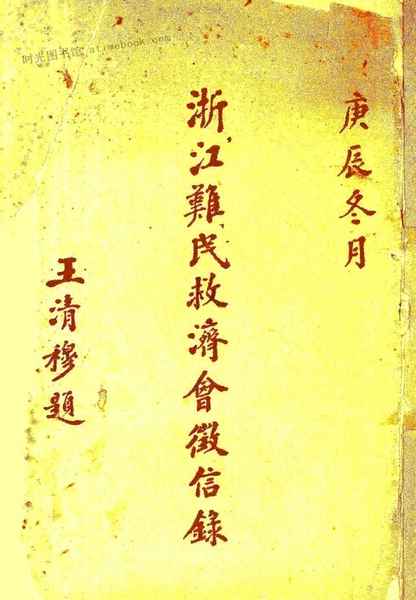 庚辰冬月
浙江難民救濟會徵信錄
王清穆題
时光图书馆 atimebook.com